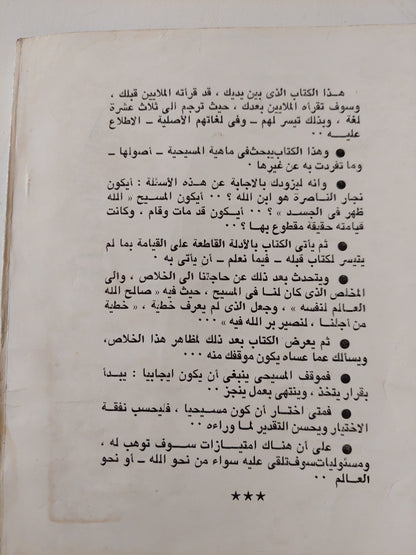 هـذا الكتاب الذى بين يديك ، قد قرأته الملايين قبلك ،
وسوف تقرأه الملايين بعدك ، حيث ترجم الى ثلاث عشرة
لغة ، وبذلك تيسر لهم ــ وفى لغاتهم الأصلية ــ الاطلاع
عليــــه ٠٠
● وهذا الكتاب يبحث فى ماهية المسيحية ــ أصولها ــ
وما تفردت به عن غيرها ٠
● وانه ليزودك بالاجابة عن هـذه الأسئلة : أيكون
نجار الناصرة هو ابن الله ؟ ٠٠ أيكون المسـيح « الله
ظهر فى الجسـد » ؟ ٠٠ أيـكون قد مات وقام ، وكانت
قيامته حقيقة مقطوع بهـا ؟ ٠٠
● ثم يأتى الكتاب بالأدلة القاطعة على القيامة بما لم
يتيسر لكتاب قبله ــ فيما نعلم ــ أن يأتى به ٠
● ويتحدث بعد ذلك عن حاجتنا الى الخلاص ، والى
المخلص الذى كان لنـا فى المسيح ، حيث فيه « صالح الله
العالم لنفسه » ، وجعل الذى لم يعرف خطية ، « خطية
من أجلنـا ، لنصير بر الله فيه » ٠٠٠
● ثم يعرض الكتاب بعد ذلك لمظاهر هذا الخلاص،
ويسألك عما عساه يكون موقفك منه ٠٠
● فموقف المسيحى ينبغى أن يكون ايجابيا : يبـدأ
بقرار يتخذ ، وينتهى بعمل ينجز ٠٠
● فمتى اختـار أن كون مسـيحيا ، فليحسب نفقـة
الاختيار ويحسن التقدير لمـا وراءه ٠٠
● على أن هنـاك امتيـازات سـوف توهب له ،
ومسئوليات سوف تلقى عليه سواء من نحو الله ــ أو نحو
العالم ٠٠
★★★